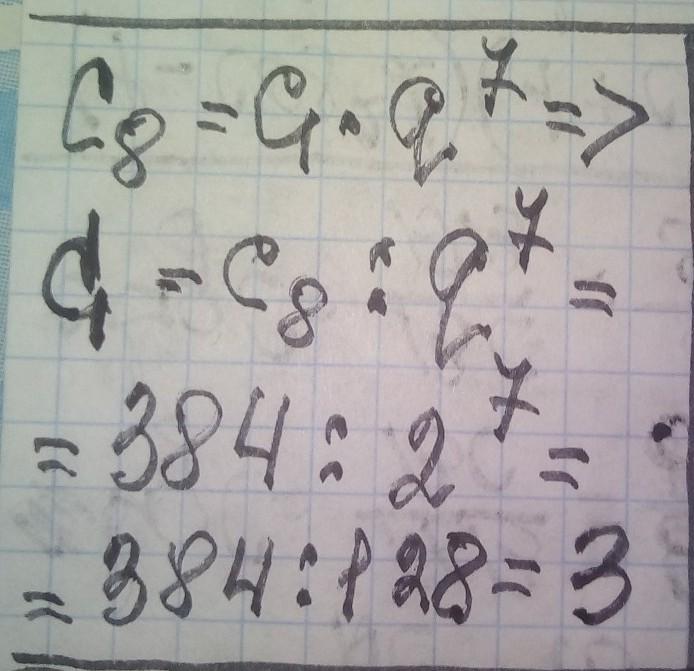 C₈ = C₁ · q⁷ =>
C₁ = C₈ : q⁷ =
= 384 : 2⁷ =
= 384 : 128 = 3